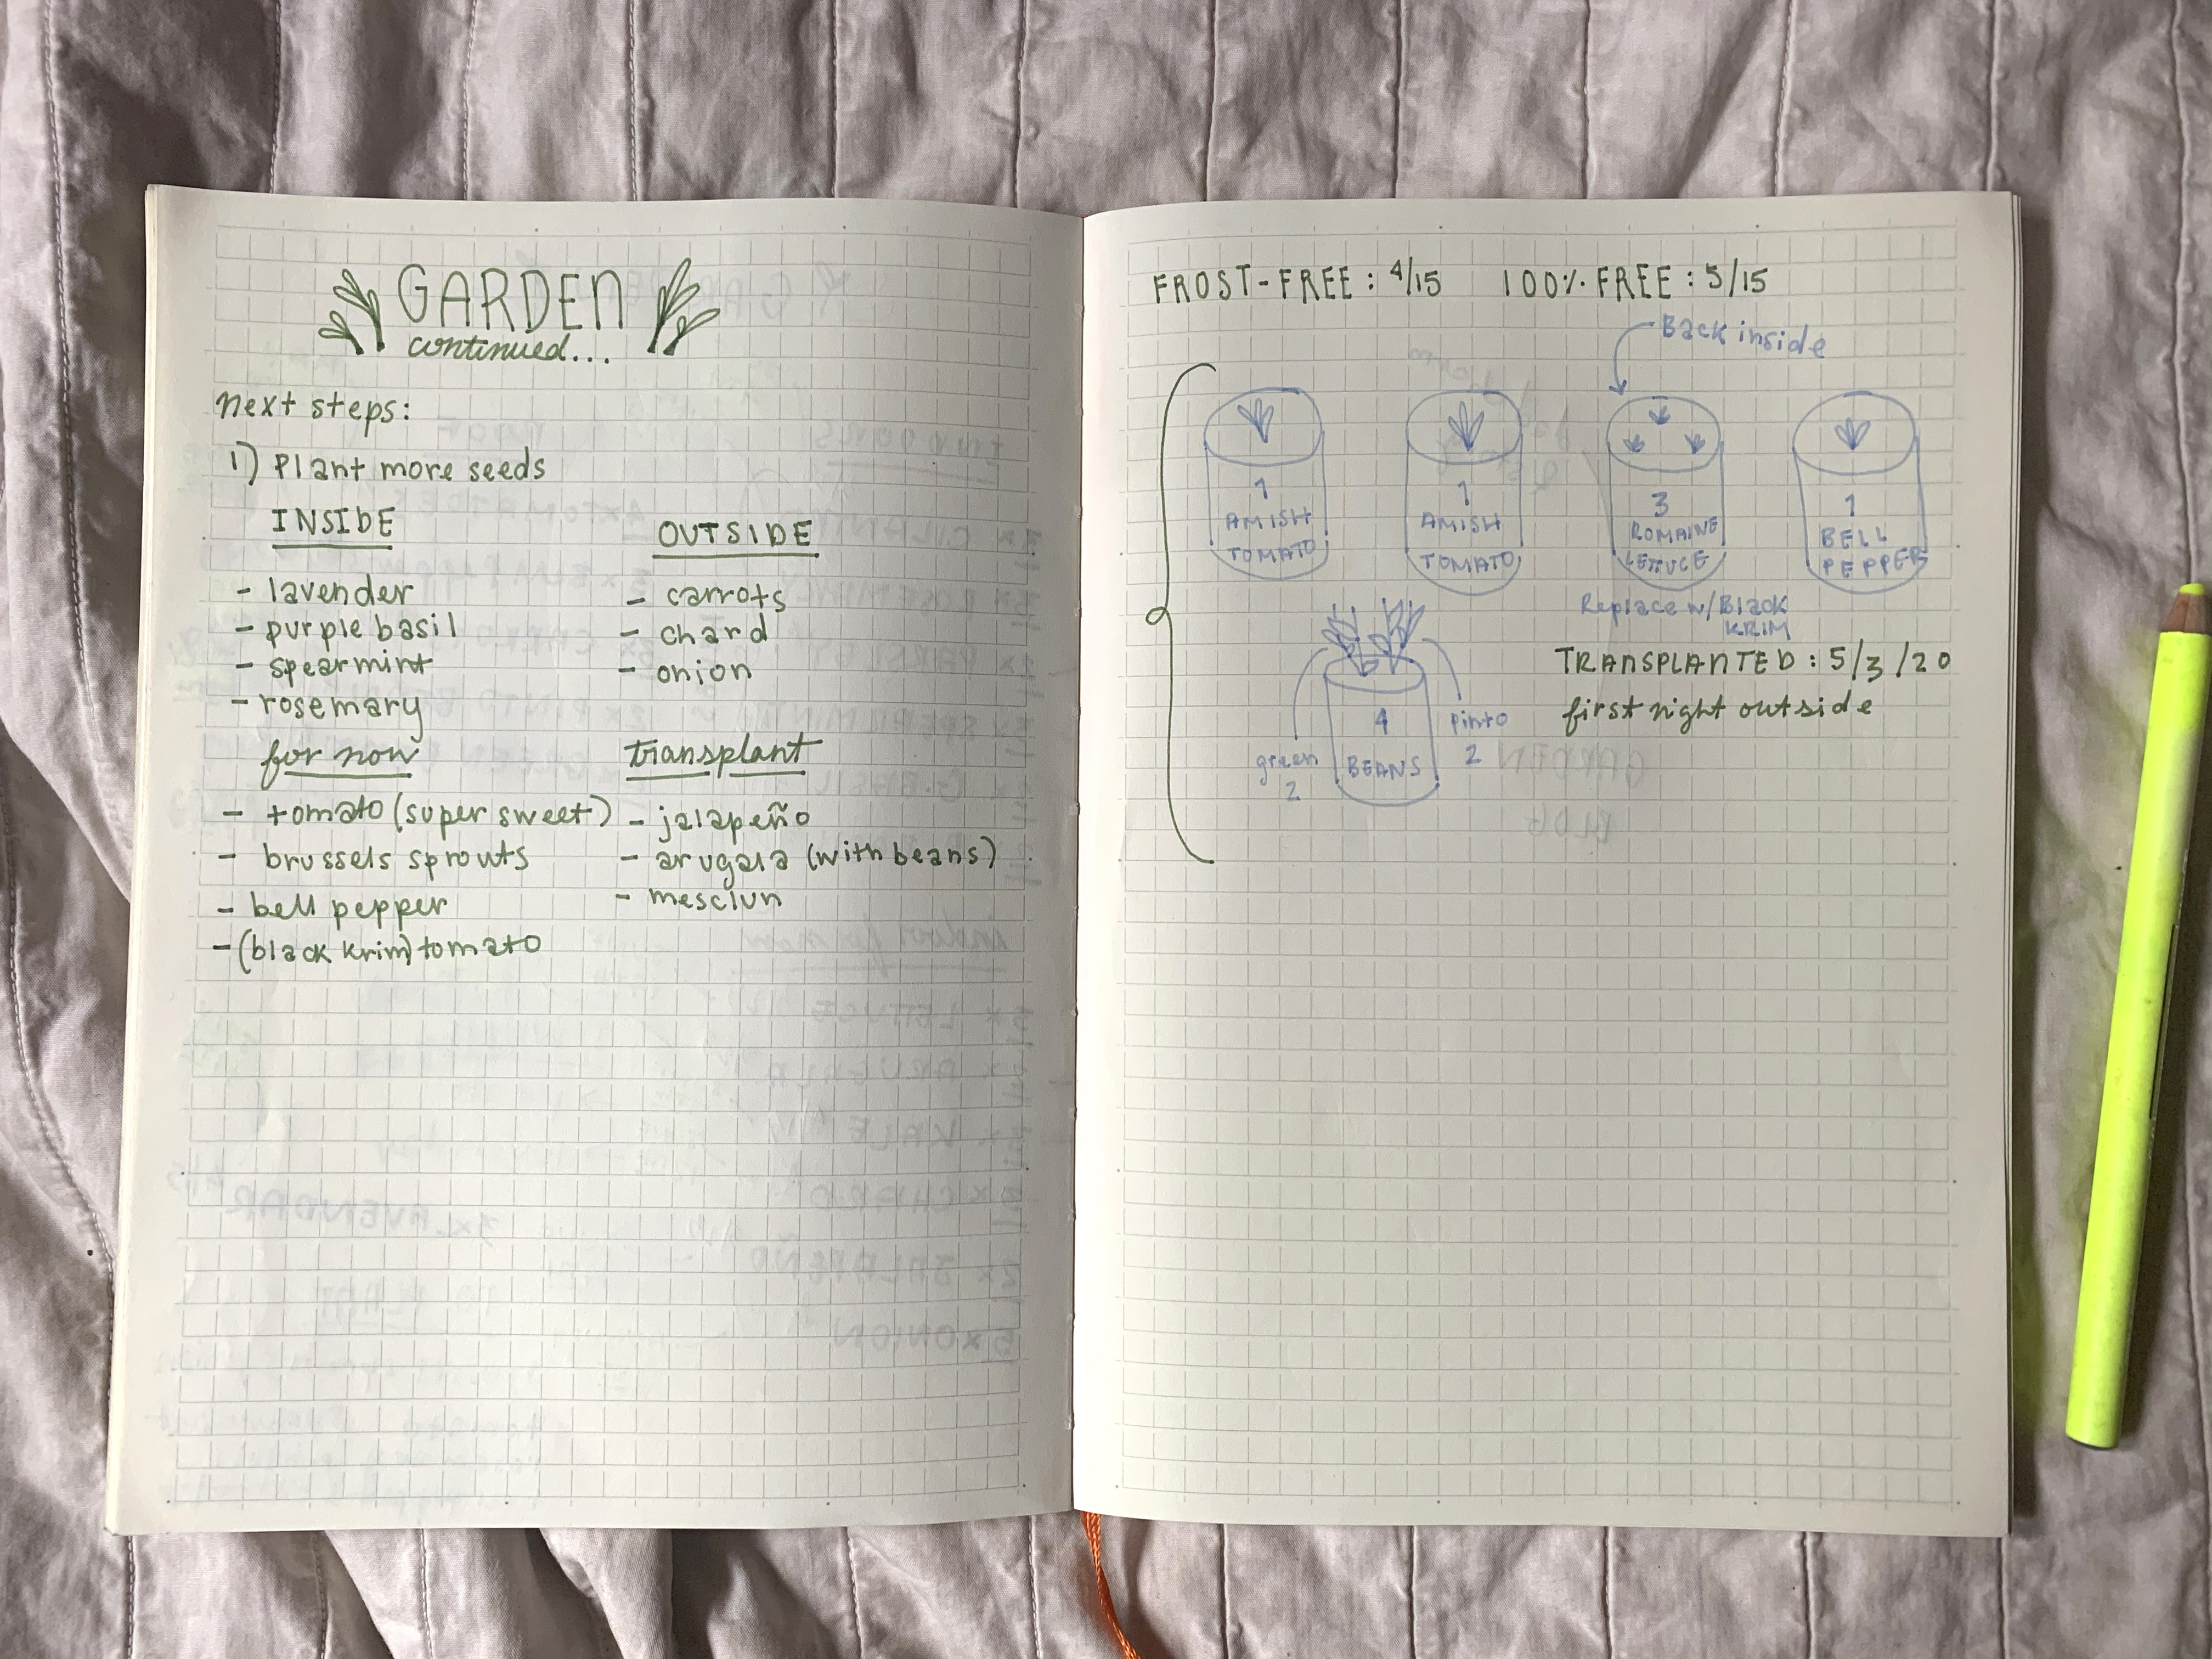 GARDEN
continued...
next steps:
1) Plant more seeds
INSIDE
- lavender
- purple basil
- spearmint
- rosemary
for now
- tomato (super sweet)
- brussels sprouts
- bell pepper
- (black krim) tomato
OUTSIDE
- carrots
- chard
- onion
transplant
- jalapeño
- arugala (with beans)
- mesclun
FROST-FREE: 4/15 100% FREE: 5/15
Back inside
1
AMISH
TOMATO
1
AMISH
TOMATO
3
ROMAINE
LETTUCE
1
BELL
PEPPER
Replace w/Black
KRIM
green
2
4
BEANS
pinto
2
TRANSPLANTED: 5/3/20
first night outside